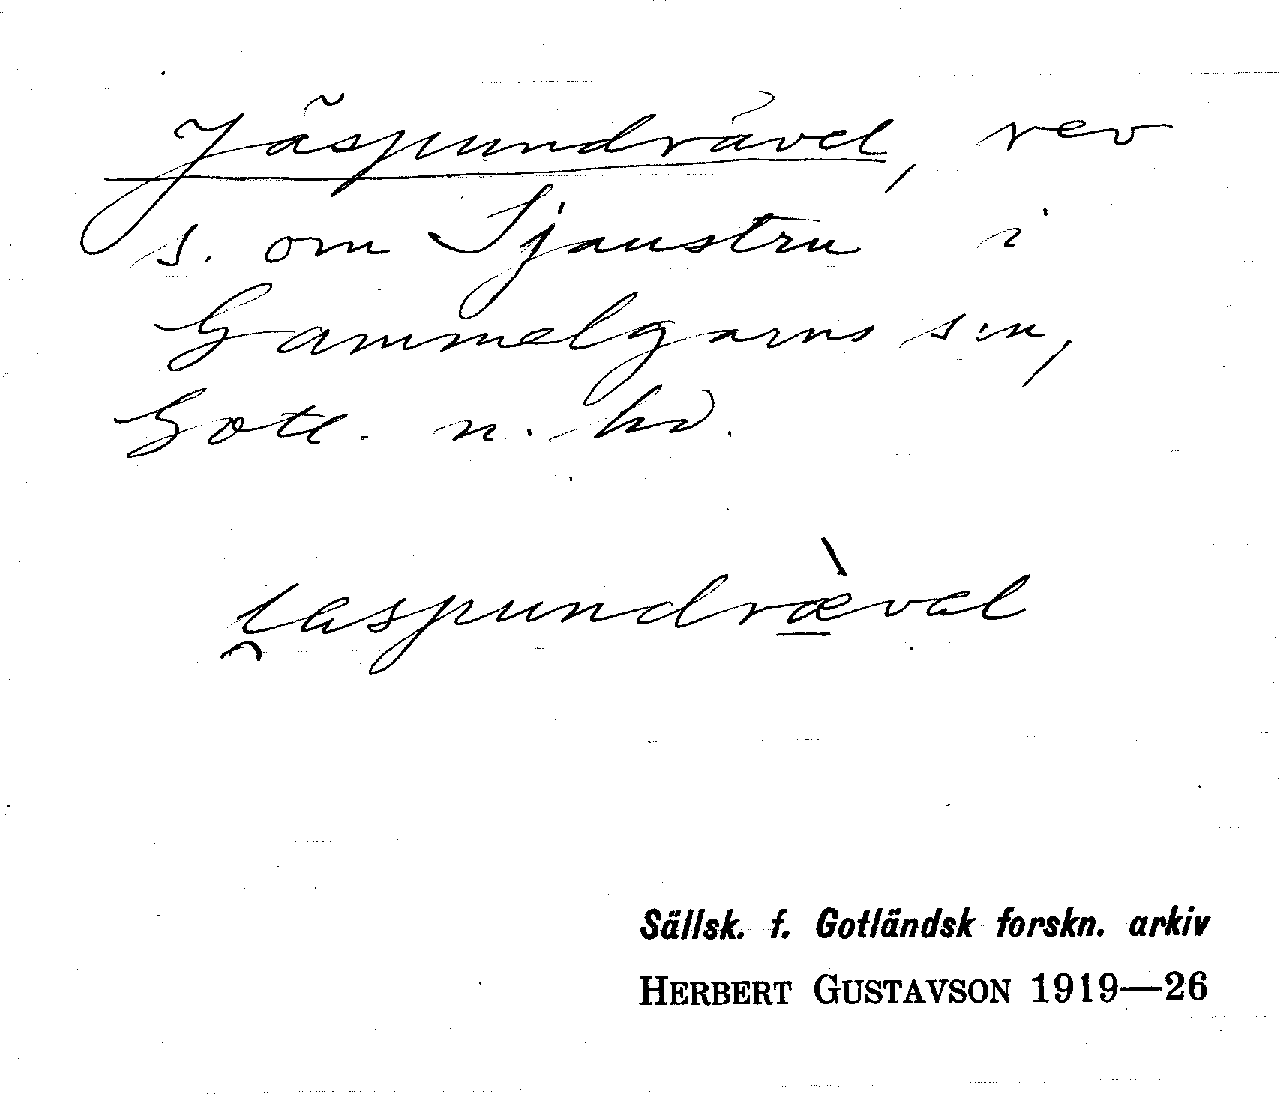 Jäspundrävel, rev
s. om Sjaustru i
Gammelgarns sn,
Gotl. n. hd.
i̯aspundræ̀vəl
Sällsk. f. Gotländsk forskn. arkiv
HERBERT GUSTAVSON 1919—26